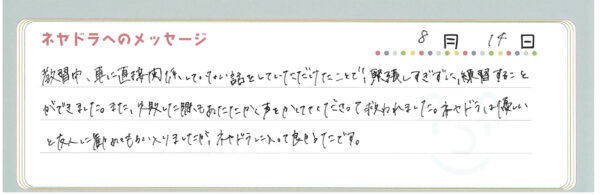 ネヤドラへのメッセージ
8月 14日
教習中、車に直接関係していない話をしていただけたことで、緊張しすぎずに、練習すること
ができました。また、失敗した際もあたたかく声をかけてくださって救われました。ネヤドラは優しい
と友人に勧めてもらい入りましたが、ネヤドラに入って良かったです。